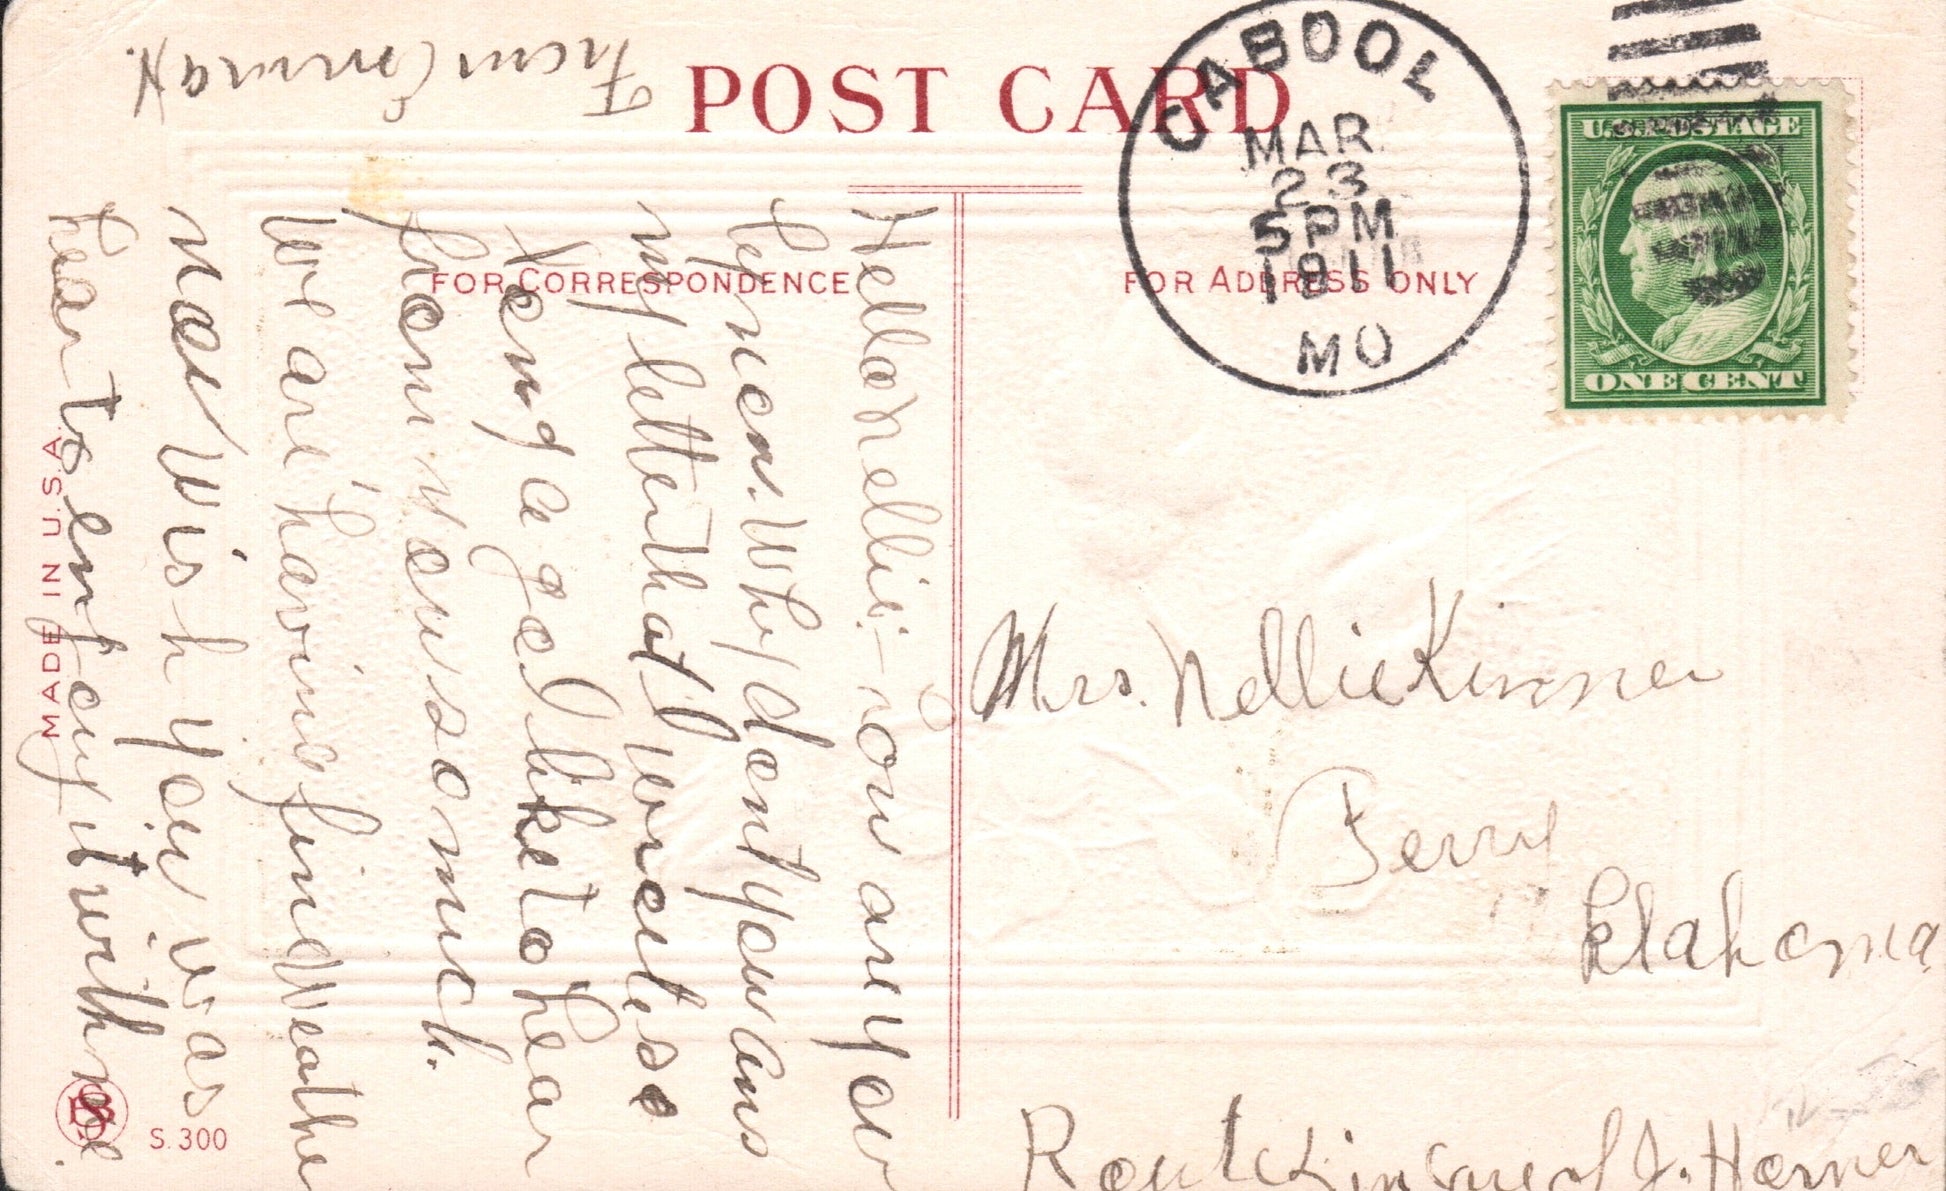 POST CARD
FOR CORRESPONDENCE
FOR ADDRESS ONLY
CABOOL
MAR
23
5 PM
1911
MO
U.S. POSTAGE
ONE CENT
Hello Nellie:- How are you
by now. Why dont you ans
my letter that I wrote so
long a go I like to hear
from you so much.
We are having fine Weather
now wish you was
hear to enjoy it with me.
From Emma H.
Mrs. Nellie Kinner
Perry
Oklahoma
Route in care of J. Horner
MADE IN U.S.A.
S. 300